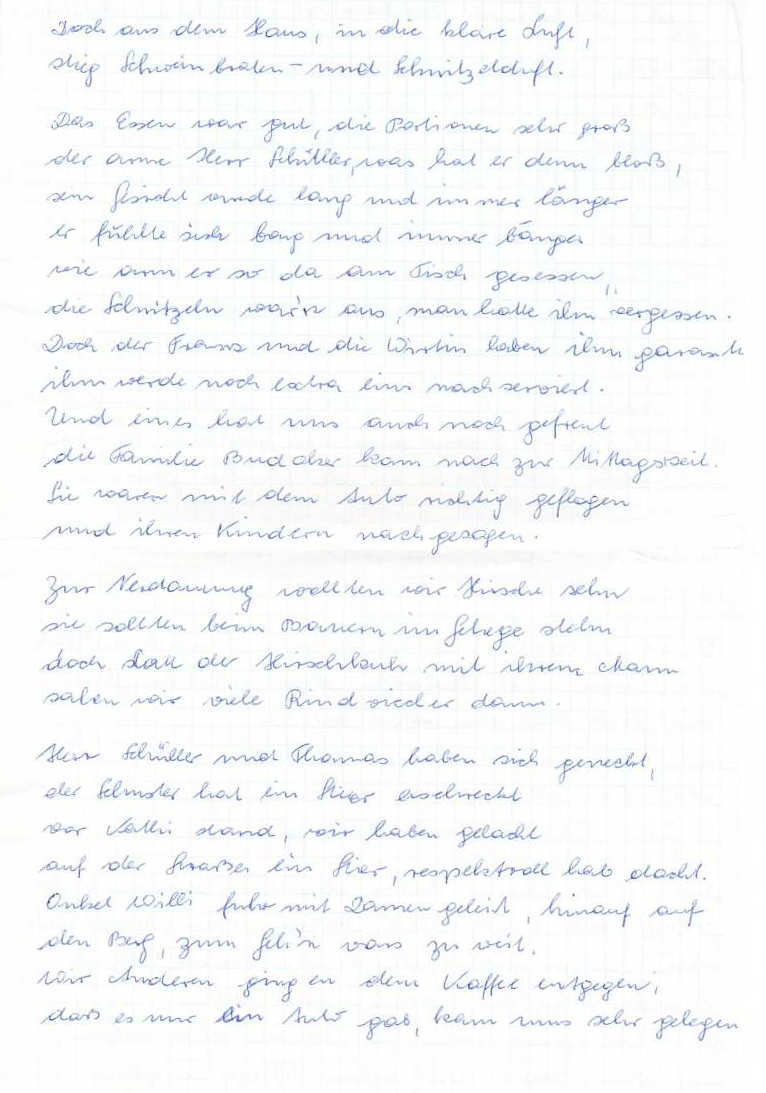 Doch aus dem Haus, in die klare Luft,
stieg Schweinbraten- und Schnitzelduft.
Das Essen war gut, die Portionen sehr groß
der arme Herr Schüller, was hat er denn bloß,
sein Gesicht wurde lang und immer länger
er fühlte sich bang und immer bänger
wie arm er so da am Tisch gesessen,
die Schnitzeln war'n aus, man hatte ihn vergessen.
Doch der Franz und die Wirtin haben ihm
ihm werde noch extra eins nachserviert.
Und eines hat uns auch noch gefreut
die Familie kam nach zur Mittagszeit.
Sie waren mit dem Auto richtig geflogen
und ihren Kindern nachgezogen.
Zur Verdauung wollten wir Hirsche sehn
sie sollten beim Bauern im Gehege stehn
doch statt der Hirschkuh mit ihrem Mann
sahen wir viele Rindviecher dann.
Herr Schüller und Thomas haben sich geneckt,
der hat ein Stier erschreckt
vor stand, wir haben gelacht
auf der Strasse ein Stier, respektvoll hab dacht.
Onkel Willi fuhr mit Damen geleit, hinauf auf
den Berg, zum Geh'n wars zu weit.
Wir Anderen gingen dem Kaffee entgegen,
dass es nur ein Auto gab, kam uns sehr gelegen